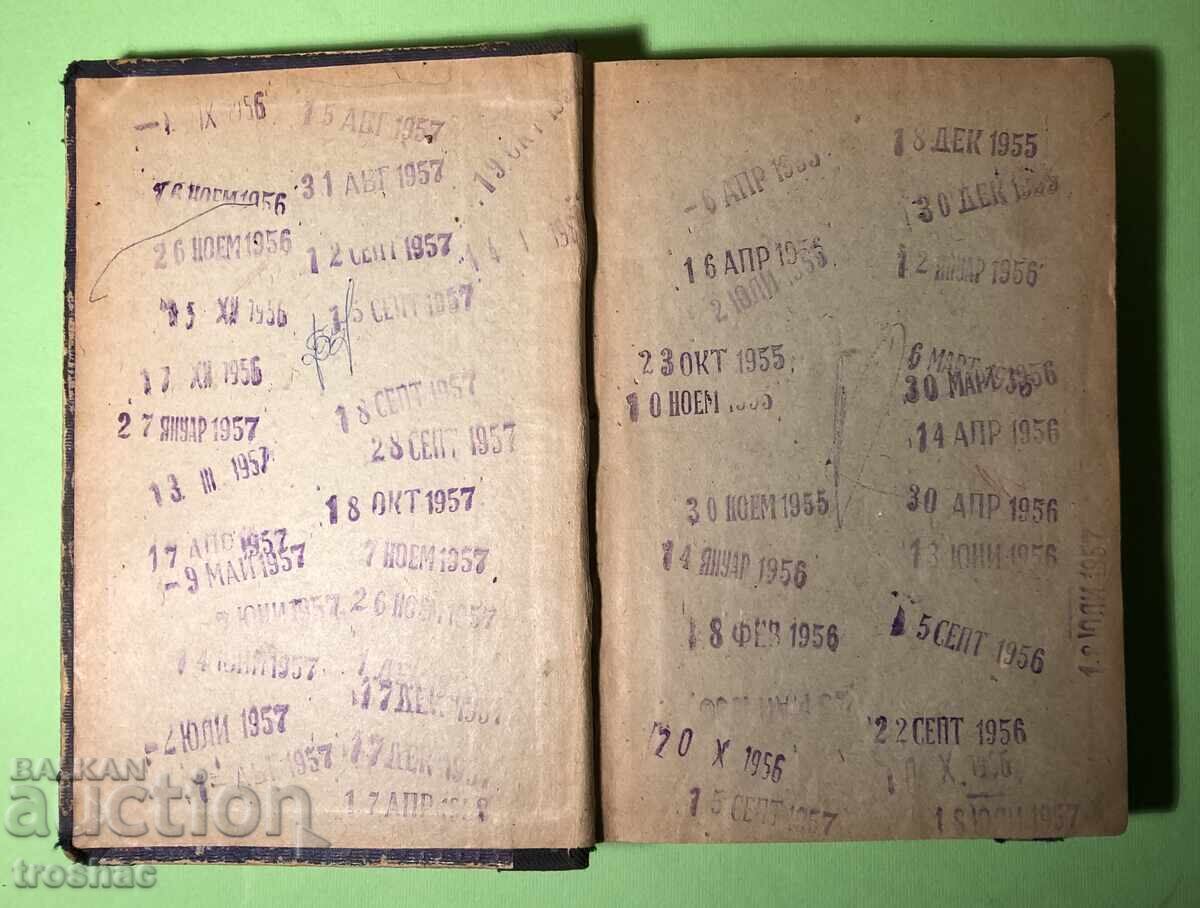 1 IX 1956
16 НОЕМ 1956
26 НОЕМ 1956
XII 1956
17 XII 1956
27 ЯНУАР 1957
13. III. 1957
17 1957
-9 МАЙ 1957
ЮНИ 1957
14 ЮНИ 1957
ЮЛИ 1957
1957
15 АВГ 1957
31 АВГ 1957
12 СЕПТ 1957
15 СЕПТ 1957
18 СЕПТ 1957
28 СЕПТ 1957
18 ОКТ 1957
7 НОЕМ 1957
26 НОЕМ 1957
17 ДЕК 1957
17 ДЕК
17 АПР
19 ОКТ
-6 АПР 1955
16 АПР 1955
2 ЮЛИ 1955
23 ОКТ 1955
10 НОЕМ 1955
30 НОЕМ 1955
14 ЯНУАР 1956
18 ФЕВ 1956
20 X 1956
15 СЕПТ 1957
18 ДЕК 1955
30 ДЕК 1955
12 ЯНУАР 1956
6 МАРТ 1956
30 МАРТ
14 АПР 1956
30 АПР 1956
13 ЮНИ 1956
15 СЕПТ 1956
22 СЕПТ 1956
X 1956
18 ЮЛИ 1957
ЮЛИ 1957
BALKAN
auction
trosnac